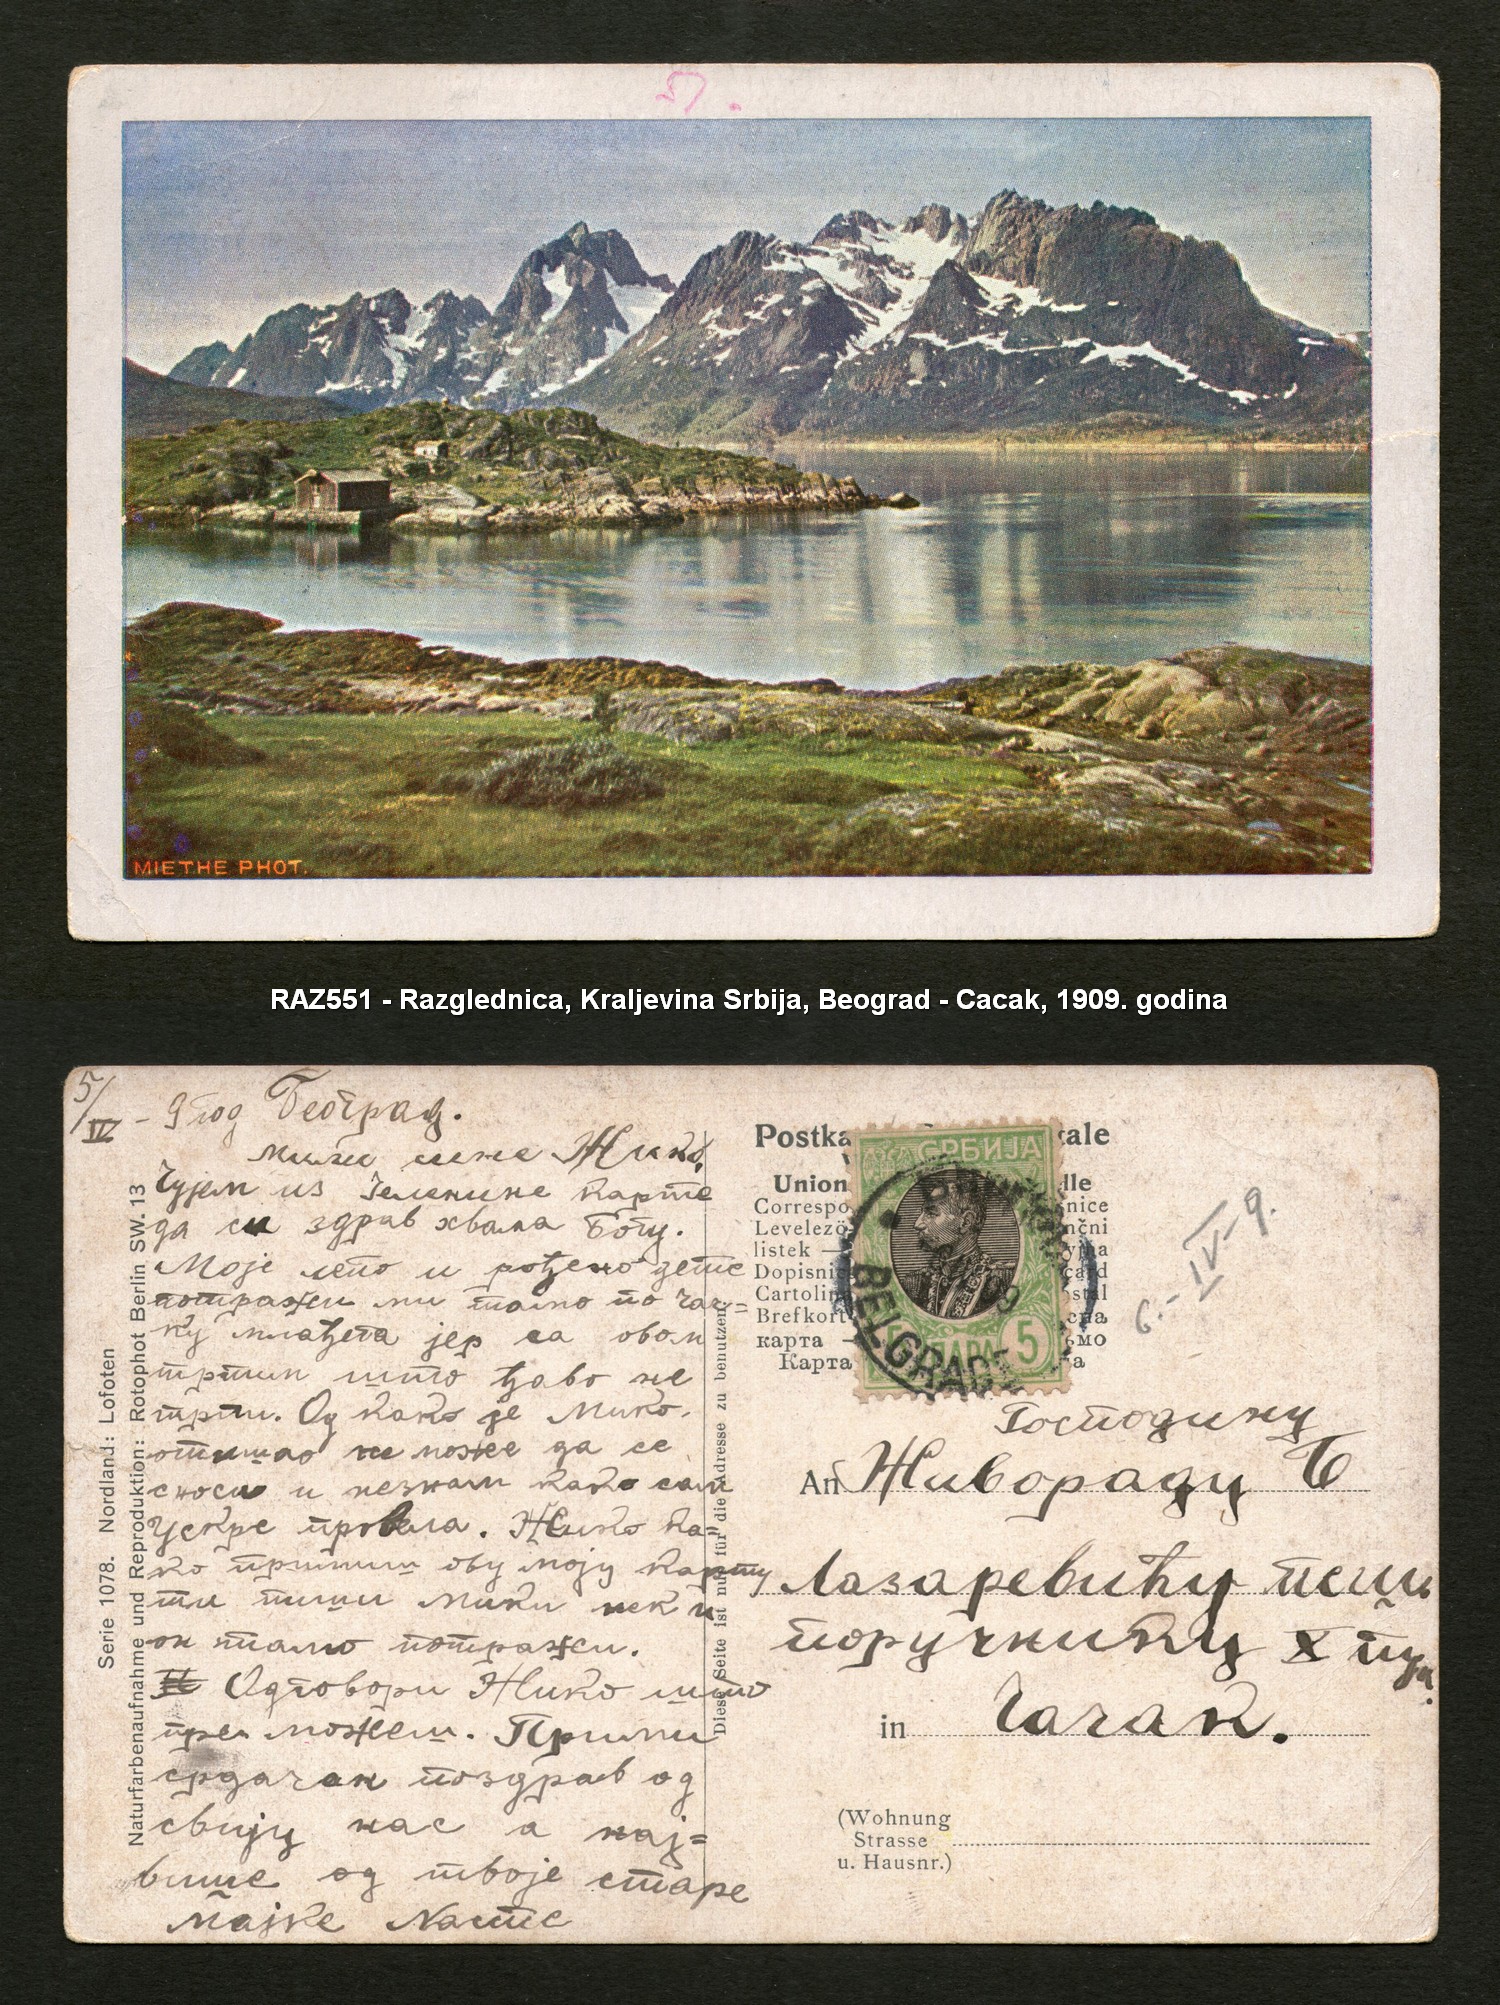 57.
MIETHE PHOT.
RAZ551 - Razglednica, Kraljevina Srbija, Beograd - Cacak, 1909. godina
5/IV - 9 год Београд.
мили сине Жико,
Чујем из Зеленине карте
да си здрав хвала Богу.
Моје лепо и рођено дете
потражи ми тамо по Чач=
ку млађега јер са овом
трпим што ђаво не
трпи. Од како је Мико.
отишао не може да се
сноси и незнам како сам
ускрс провела. Жико ка=
ко примиш ову моју карту
ти пиши Мики нек и
он тамо потражи.
Одговори Жико што
пре можеш. Прими
срдачан поздрав од
свију нас а нај=
више од твоје старе
мајке Насте
Serie 1078. Nordland: Lofoten
Naturfarbenaufnahme und Reproduktion: Rotophot Berlin SW. 13
Diese Seite ist nur für die Adresse zu benutzen.
Postka ale
Union lle
Correspo snice
Levelező nčni
listek —
Dopisnic card
Cartolin ostal
Brefkort
карта — ьмо
Карта а
СРБИЈА
ПАРА 5
BELGRADE
6.-IV-9.
Господину
An Живораду Б
Лазаревићу пеш.
поручнику X пук.
in Чачак.
(Wohnung
Strasse
u. Hausnr.)